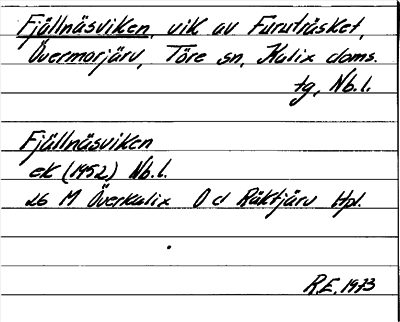 Fjällnäsviken, vik av Furuträsket,
Övermorjärv, Töre sn, Kalix doms.
tg, Nb.l.
Fjällnäsviken
ek (1952) Nb.l.
26 M Överkalix 0 d Räktjärv Hpl.
R.E. 1973